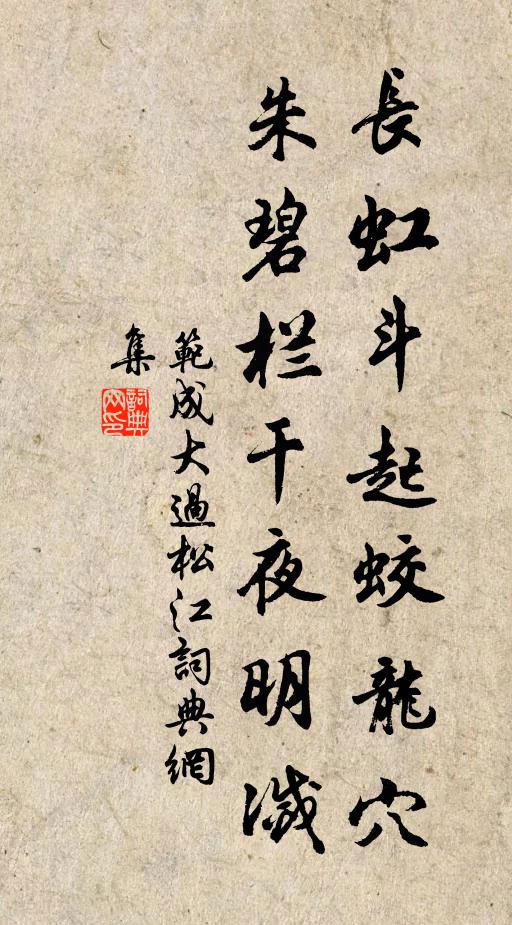 長虹斗起蛟龍穴
朱碧栏干夜明滅
範成大過松江詞典網
集
詞典
网印